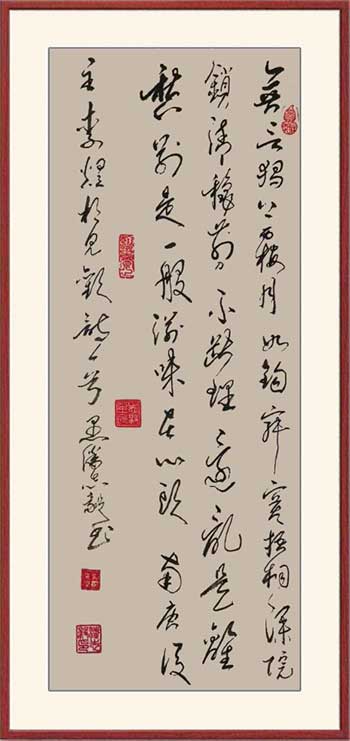 無言獨上西樓月如鈎寂寞梧桐深院
鎖清秋剪不斷理還亂是離
愁別是一般滋味在心頭 南唐後
主李煜相見歡詞一首